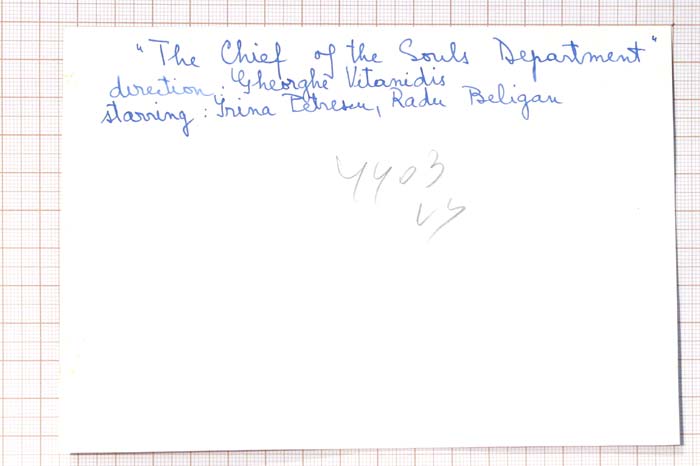 "The Chief of the Souls Department"
direction: Gheorghe Vitanidis
starring: Irina Petrescu, Radu Beligan
4403